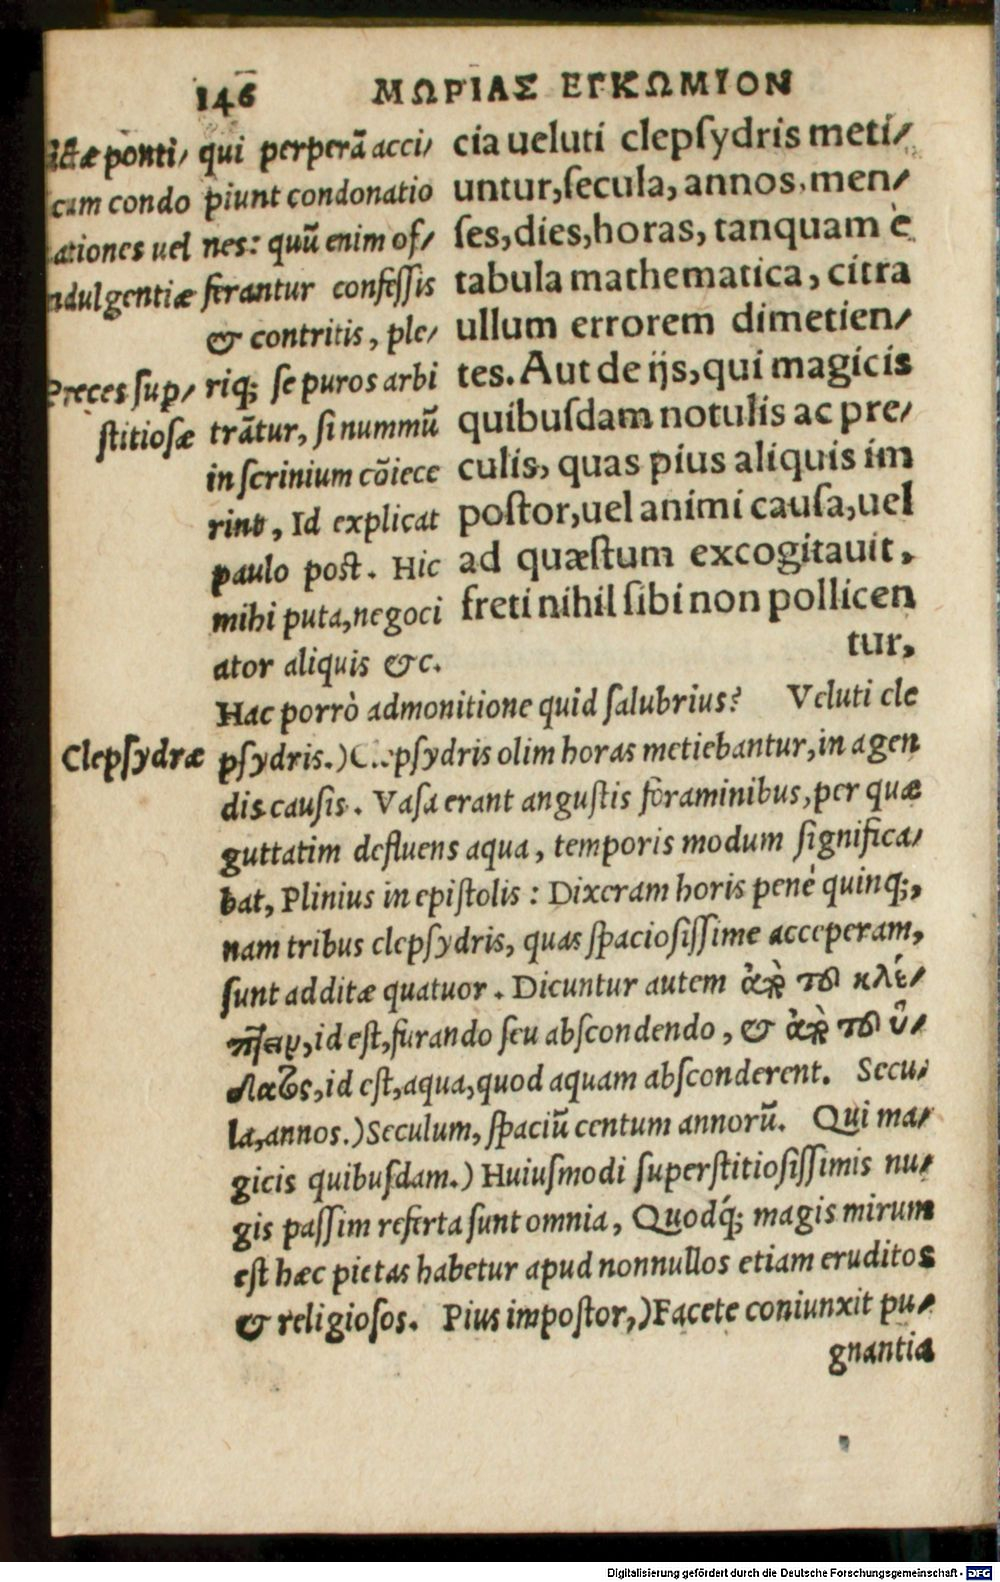 146 ΜΩΡΙΑΣ ΕΓΚΩΜΙΟΝ
cia ueluti clepſydris meti⸗
untur, ſecula, annos, men⸗
ſes, dies, horas, tanquam è
tabula mathematica, citra
ullum errorem dimetien⸗
tes. Aut de ijs, qui magicis
quibuſdam notulis ac pre⸗
culis, quas pius aliquis im
poſtor, uel animi cauſa, uel
ad quæſtum excogitauit,
freti nihil ſibi non pollicen
tur,
ponti⸗
condo
ationes uel
ndulgentiæ
Preces ſup⸗
ſtitioſæ
qui perperā acci⸗
piunt condonatio
nes: quū enim of⸗
ferantur confeſſis
& contritis, ple⸗
riq; ſe puros arbi
trātur, ſi nummū
in ſcrinium cōiece
rint, Id explicat
paulo poſt. Hic
mihi puta, negoci
ator aliquis &c.
Hac porrò admonitione quid ſalubrius? Veluti cle
Clepſydræ
pſydris.) Clepſydris olim horas metiebantur, in agen
dis cauſis. Vaſa erant anguſtis foraminibus, per quæ
guttatim defluens aqua, temporis modum ſignifica⸗
bat, Plinius in epiſtolis: Dixeram horis penè quinq;,
nam tribus clepſydris, quas ſpacioſiſſime acceperam,
ſunt additæ quatuor. Dicuntur autem ἀπὸ τοῦ κλέ⸗
πτειν, id eſt, furando ſeu abſcondendo, & ἀπὸ τοῦ ὕ⸗
δατος, id eſt, aqua, quod aquam abſconderent. Secu⸗
la, annos.) Seculum, ſpaciū centum annorū. Qui ma⸗
gicis quibuſdam.) Huiuſmodi ſuperſtitioſiſſimis nu⸗
gis paſſim referta ſunt omnia, Quodq́; magis mirum
eſt hæc pietas habetur apud nonnullos etiam eruditos
& religioſos. Pius impoſtor,) Facete coniunxit pu⸗
gnantia
Digitalisierung gefördert durch die Deutsche Forschungsgemeinschaft - DFG